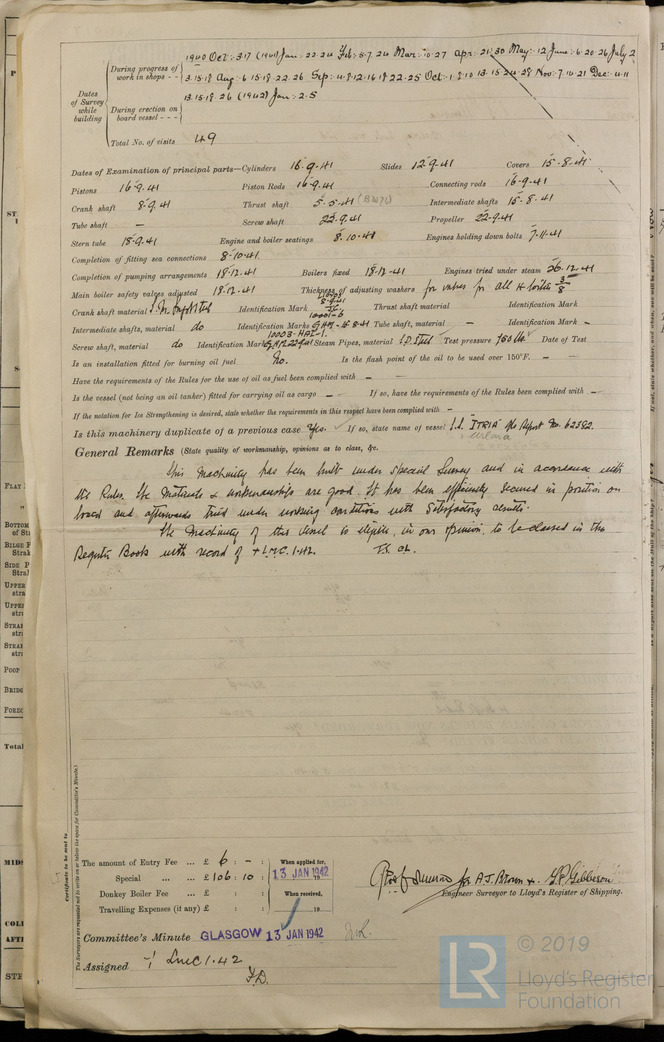 1940 Oct: 3.17 (1941) Jan: 22.24 Feb: 5.7.24 Mar: 10.27 Apr: 21.30 May: 12 June: 6.20.26 July 2
During progress of work in shops - - 13.15.18 Aug: 6.15.18.22.26 Sep: 4.8.12.16.18.22.25 Oct: 1.8.10.13.15.24.28 Nov: 7.10.21 Dec: 4.11
Dates of Survey while building
During erection on board vessel - - - 13.15.18.26 (1942) Jan: 2.5
Total No. of visits 49
Dates of Examination of principal parts—Cylinders 16.9.41 Slides 12.9.41 Covers 15.8.41
Pistons 16.9.41 Piston Rods 16.9.41 Connecting rods 16.9.41
Crank shaft 8.9.41 Thrust shaft 5.5.41 Intermediate shafts 15.8.41
Tube shaft — Screw shaft 22.9.41 Propeller 22.9.41
Stern tube 18.9.41 Engine and boiler seatings 8.10.41 Engines holding down bolts 7.11.41
Completion of fitting sea connections 8.10.41
Completion of pumping arrangements 18.12.41 Boilers fixed 18.12.41 Engines tried under steam 26.12.41
Main boiler safety valves adjusted 18.12.41 Thickness of adjusting washers for valves for all 4 boilers 3/8
Crank shaft material S.M. Ingot Steel Identification Mark Thrust shaft material Identification Mark
Intermediate shafts, material do Identification Marks Tube shaft, material — Identification Mark —
Screw shaft, material do Identification Mark Steam Pipes, material S.D. Steel Test pressure Date of Test
Is an installation fitted for burning oil fuel No. Is the flash point of the oil to be used over 150°F. —
Have the requirements of the Rules for the use of oil as fuel been complied with —
Is the vessel (not being an oil tanker) fitted for carrying oil as cargo — If so, have the requirements of the Rules been complied with —
If the notation for Ice Strengthening is desired, state whether the requirements in this respect have been complied with —
Is this machinery duplicate of a previous case Yes. If so, state name of vessel S.S. "ITRIA" Report No. 62392.
General Remarks (State quality of workmanship, opinions as to class, &c.
This Machinery has been built under special Survey and in accordance with
the Rules. The Materials & workmanship are good. It has been efficiently secured in position on
board and afterwards tried under working conditions with satisfactory results.
The Machinery of this vessel is eligible, in our opinion, to be classed in the
Register Book with record of + L.M.C. 1.42. T.S. CL.
Certificate to be sent to
(The Surveyors are requested not to write on or below the space for Committee's Minute.)
The amount of Entry Fee ... £ 6 : - : When applied for,
Special ... ... £ 106 : 10 : 13 JAN 1942
Donkey Boiler Fee ... £ : : When received,
Travelling Expenses (if any) £ : : 19
for A.J. Brown &
Engineer Surveyor to Lloyd's Register of Shipping.
Committee's Minute GLASGOW 13 JAN 1942
Assigned + LMC 1.42
© 2019
LR
Lloyd's Register
Foundation